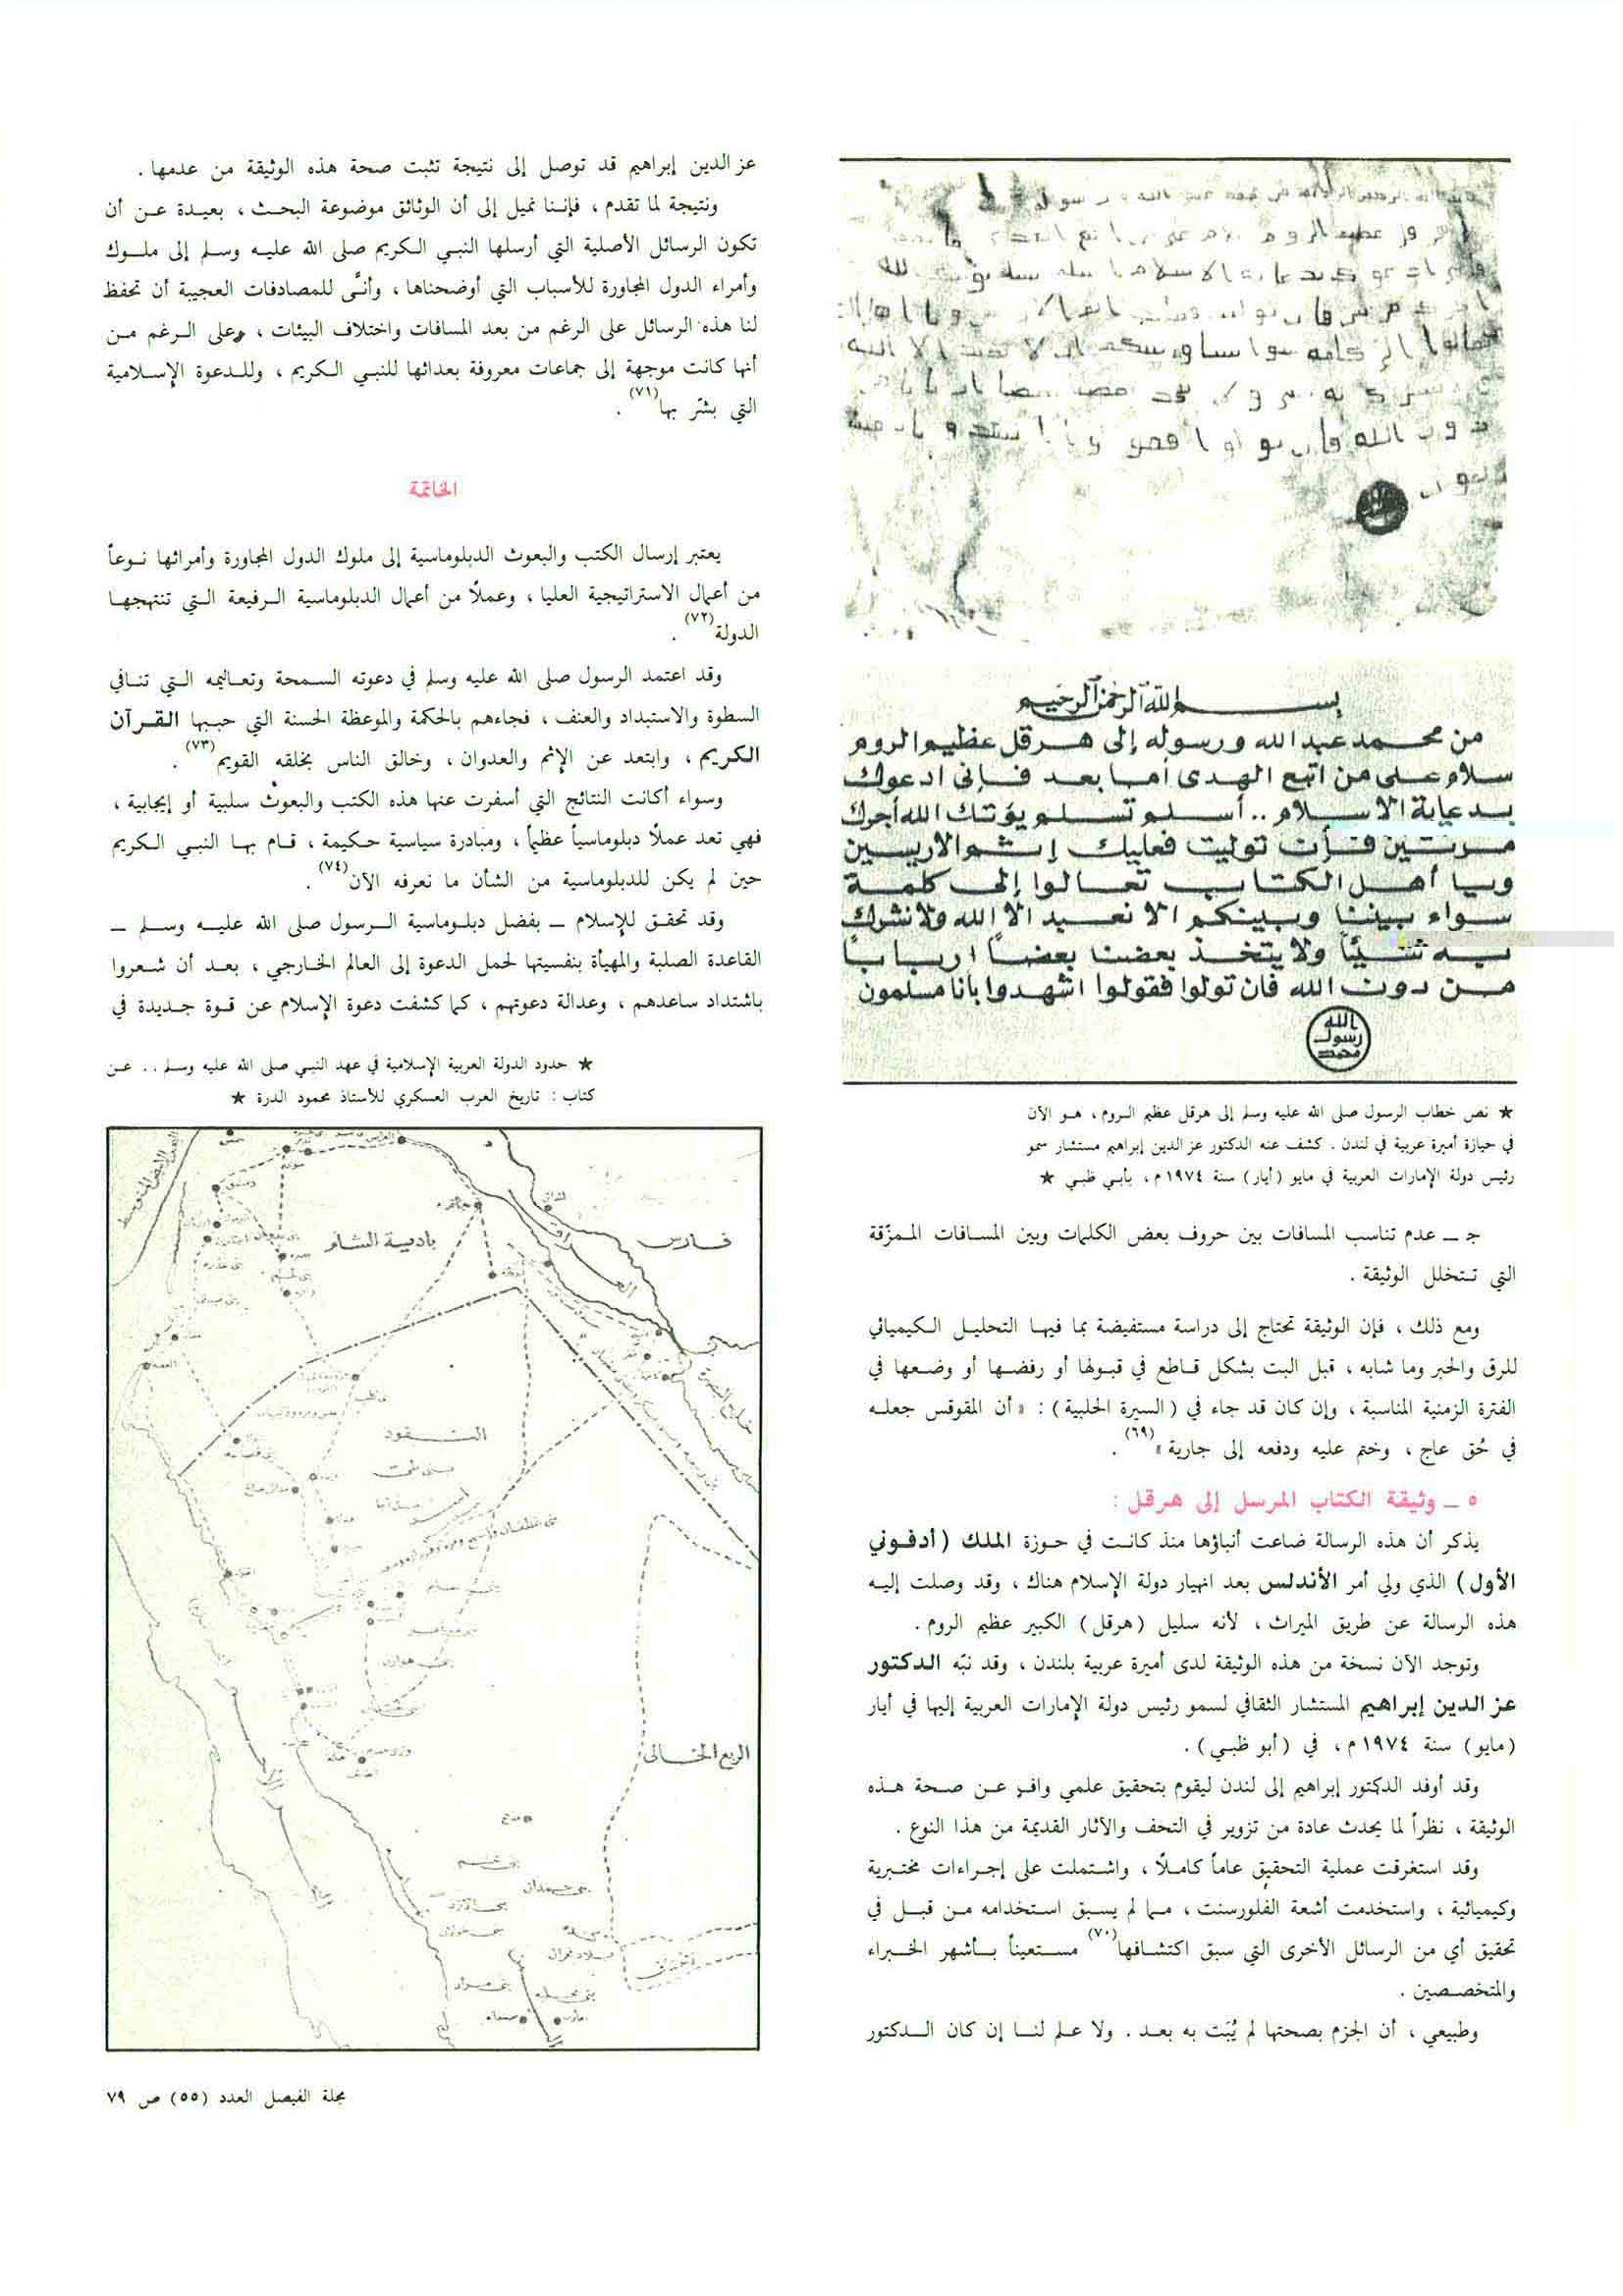 بسم الله الرحمن الرحيم
من محمد عبد الله ورسوله إلى هرقل عظيم الروم
سلام على من اتبع الهدى أما بعد فإنى ادعوك
بدعاية الاسلام .. أسلم تسلم يؤتك الله أجرك
مرتين فإن توليت فعليك إثم الاريسين
ويا أهل الكتاب تعالوا إلى كلمة
سواء بيننا وبينكم الا نعبد الا الله ولا نشرك
به شيئاً ولا يتخذ بعضنا بعضاً ارباباً
من دون الله فان تولوا فقولوا اشهدوا بأنا مسلمون
الله
رسول
محمد
★ نص خطاب الرسول صلى الله عليه وسلم إلى هرقل عظيم الروم ، هو الآن
في حيازة أميرة عربية في لندن . كشف عنه الدكتور عز الدين إبراهيم مستشار سمو
رئيس دولة الإمارات العربية في مايو (أيار) سنة ١٩٧٤ م ، بأبي ظبي ★
جـ ــ عدم تناسب المسافات بين حروف بعض الكلمات وبين المسافات الممزّقة
التي تتخلل الوثيقة .
ومع ذلك ، فإن الوثيقة تحتاج إلى دراسة مستفيضة بما فيها التحليل الكيميائي
للرق والحبر وما شابه ، قبل البت بشكل قاطع في قبولها أو رفضها أو وضعها في
الفترة الزمنية المناسبة ، وإن كان قد جاء في ( السيرة الحلبية ) : « أن المقوقس جعله
في حُق عاج ، وختم عليه ودفعه إلى جارية »(٦٩) .
٥ ــ وثيقة الكتاب المرسل إلى هرقل :
يذكر أن هذه الرسالة ضاعت أنباؤها منذ كانت في حوزة الملك ( أدفوني
الأول ) الذي ولي أمر الأندلس بعد انهيار دولة الإسلام هناك ، وقد وصلت إليه
هذه الرسالة عن طريق الميراث ، لأنه سليل ( هرقل ) الكبير عظيم الروم .
وتوجد الآن نسخة من هذه الوثيقة لدى أميرة عربية بلندن ، وقد نبّه الدكتور
عز الدين إبراهيم المستشار الثقافي لسمو رئيس دولة الإمارات العربية إليها في أيار
( مايو ) سنة ١٩٧٤ م ، في ( أبو ظبي ) .
وقد أوفد الدكتور إبراهيم إلى لندن ليقوم بتحقيق علمي وافر عن صحة هذه
الوثيقة ، نظراً لما يحدث عادة من تزوير في التحف والآثار القديمة من هذا النوع .
وقد استغرقت عملية التحقيق عاماً كاملاً ، واشتملت على إجراءات مختبرية
وكيميائية ، واستخدمت أشعة الفلورسنت ، مما لم يسبق استخدامه من قبل في
تحقيق أي من الرسائل الأخرى التي سبق اكتشافها(٧٠) مستعيناً بأشهر الخبراء
والمتخصصين .
وطبيعي ، أن الجزم بصحتها لم يُبَت به بعد . ولا علم لنا إن كان الدكتور
عز الدين إبراهيم قد توصل إلى نتيجة تثبت صحة هذه الوثيقة من عدمها .
ونتيجة لما تقدم ، فإننا نميل إلى أن الوثائق موضوعة البحث ، بعيدة عن أن
تكون الرسائل الأصلية التي أرسلها النبي الكريم صلى الله عليه وسلم إلى ملوك
وأمراء الدول المجاورة للأسباب التي أوضحناها ، وأنَّى للمصادفات العجيبة أن تحفظ
لنا هذه الرسائل على الرغم من بعد المسافات واختلاف البيئات ، وعلى الرغم من
أنها كانت موجهة إلى جماعات معروفة بعدائها للنبي الكريم ، وللدعوة الإسلامية
التي بشّر بها(٧١) .
الخاتمة
يعتبر إرسال الكتب والبعوث الدبلوماسية إلى ملوك الدول المجاورة وأمرائها نوعاً
من أعمال الاستراتيجية العليا ، وعملاً من أعمال الدبلوماسية الرفيعة التي تنتهجها
الدولة(٧٢) .
وقد اعتمد الرسول صلى الله عليه وسلم في دعوته السمحة وتعاليمه التي تنافي
السطوة والاستبداد والعنف ، فجاءهم بالحكمة والموعظة الحسنة التي حببها القرآن
الكريم ، وابتعد عن الإثم والعدوان ، وخالق الناس بخلقه القويم(٧٣) .
وسواء أكانت النتائج التي أسفرت عنها هذه الكتب والبعوث سلبية أو إيجابية ،
فهي تعد عملاً دبلوماسياً عظيماً ، ومبادرة سياسية حكيمة ، قام بها النبي الكريم
حين لم يكن للدبلوماسية من الشأن ما نعرفه الآن(٧٤) .
وقد تحقق للإسلام ــ بفضل دبلوماسية الرسول صلى الله عليه وسلم ــ
القاعدة الصلبة والمهيأة بنفسيتها لحمل الدعوة إلى العالم الخارجي ، بعد أن شعروا
باشتداد ساعدهم ، وعدالة دعوتهم ، كما كشفت دعوة الإسلام عن قوة جديدة في
★ حدود الدولة العربية الإسلامية في عهد النبي صلى الله عليه وسلم .. عن
كتاب : تاريخ العرب العسكري للأستاذ محمود الدرة ★
فارس
بادية الشام
النفود
الربع الخالى
مجلة الفيصل العدد (٥٥) ص ٧٩